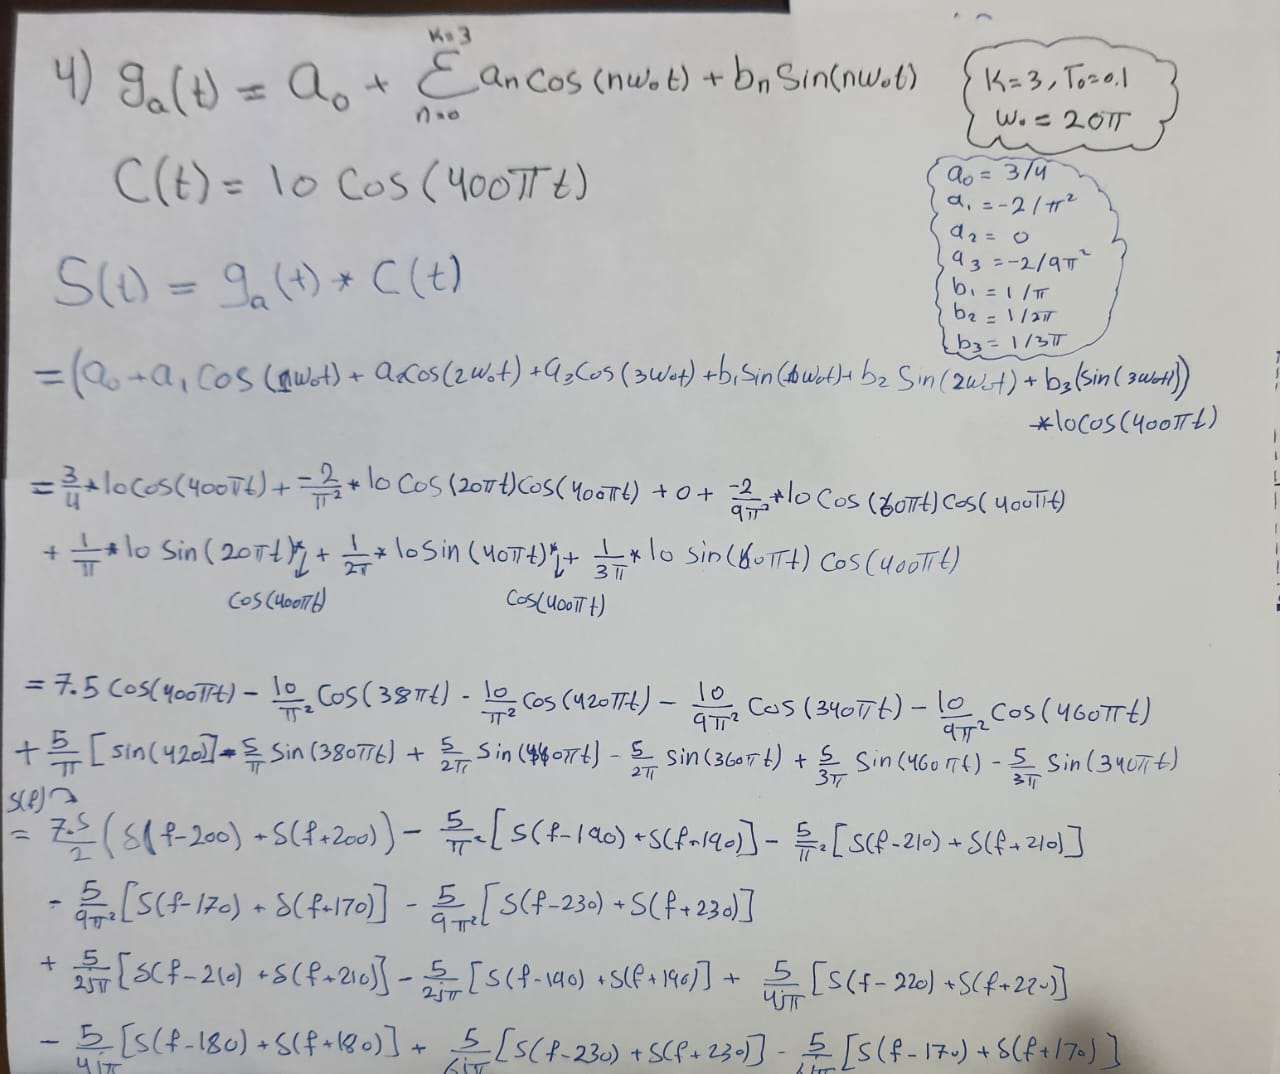 4) gₐ(t) = a₀ + Σ_{n=0}^{K=3} aₙ cos(nω₀t) + bₙ Sin(nω₀t)
K=3, T₀=0.1
ω₀ = 20π
C(t) = 10 Cos(400πt)
a₀ = 3/4
a₁ = -2/π²
a₂ = 0
a₃ = -2/9π²
b₁ = 1/π
b₂ = 1/2π
b₃ = 1/3π
S(t) = gₐ(t) * C(t)
= (a₀ + a₁ Cos(1ω₀t) + a₂cos(2ω₀t) + a₃cos(3ω₀t) + b₁Sin(ω₀t) + b₂ Sin(2ω₀t) + b₃(sin(3ω₀t)))
*10cos(400πt)
= 3/4 * 10cos(400πt) + -2/π² * 10 Cos(20πt)cos(400πt) + 0 + -2/9π² * 10 Cos(60πt)cos(400πt)
+ 1/π * 10 Sin(20πt)* ↓ + 1/2π * 10Sin(40πt)* ↓ + 1/3π * 10 sin(60πt) Cos(400πt)
cos(400πt) cos(400πt)
= 7.5 Cos(400πt) - 10/π² Cos(38πt) - 10/π² Cos(420πt) - 10/9π² Cos(340πt) - 10/9π² Cos(460πt)
+ 5/π [sin(420)] - 5/π Sin(380πt) + 5/2π Sin(440πt) - 5/2π Sin(360πt) + 5/3π Sin(460πt) - 5/3π Sin(340πt)
S(f)
= 7.5/2 (δ(f-200) + δ(f+200)) - 5/π² [δ(f-190) + δ(f+190)] - 5/π² [δ(f-210) + δ(f+210)]
- 5/9π² [δ(f-170) + δ(f+170)] - 5/9π² [δ(f-230) + δ(f+230)]
+ 5/2jπ [δ(f-210) + δ(f+210)] - 5/2jπ [δ(f-190) + δ(f+190)] + 5/4jπ [δ(f-220) + δ(f+220)]
- 5/4jπ [δ(f-180) + δ(f+180)] + 5/6jπ [δ(f-230) + δ(f+230)] - 5/6jπ [δ(f-170) + δ(f+170)]